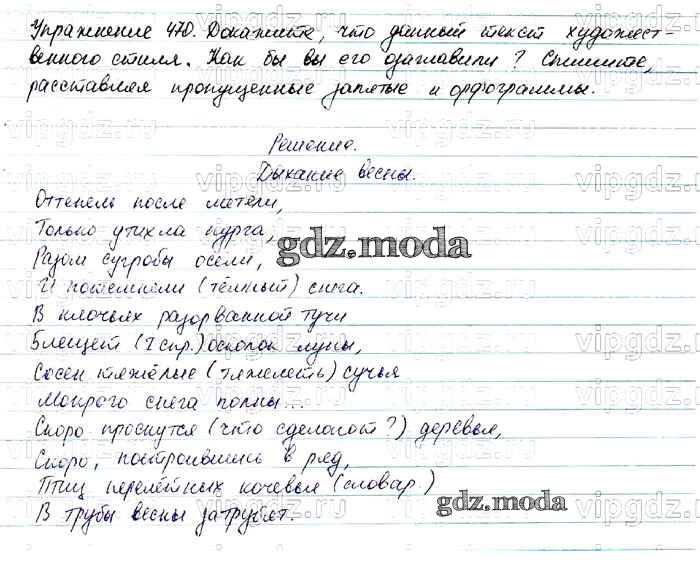 Упражнение 470. Докажите, что данный текст художест-
венного стиля. Как бы вы его озаглавили? Спишите,
расставляя пропущенные запятые и орфограммы.
Решение.
Дыхание весны.
Оттепель после метели,
Только утихла пурга,
Разом сугробы осели,
И потемнели (тёмный) снега.
В клочьях разорванной тучи
Блещет (I спр.) осколок луны,
Сосен тяжёлые (тяжелеть) сучья
Мокрого снега полны...
Скоро проснутся (что сделают?) деревья,
Скоро, построившись в ряд,
Птиц перелётных кочевья (словар.)
В трубы весны затрубят.
gdz.moda
gdz.moda
vipgdz.ru